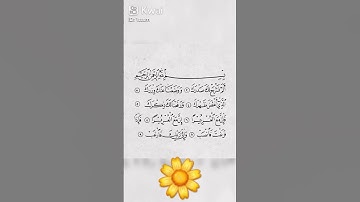 Kwai
بسم الله الرحمن الرحيم
ألم نشرح لك صدرك ووضعنا عنك وزرك
الذي أنقض ظهرك ورفعنا لك ذكرك
فإن مع العسر يسرا إن مع العسر يسرا فإذا
فرغت فانصب وإلى ربك فارغب